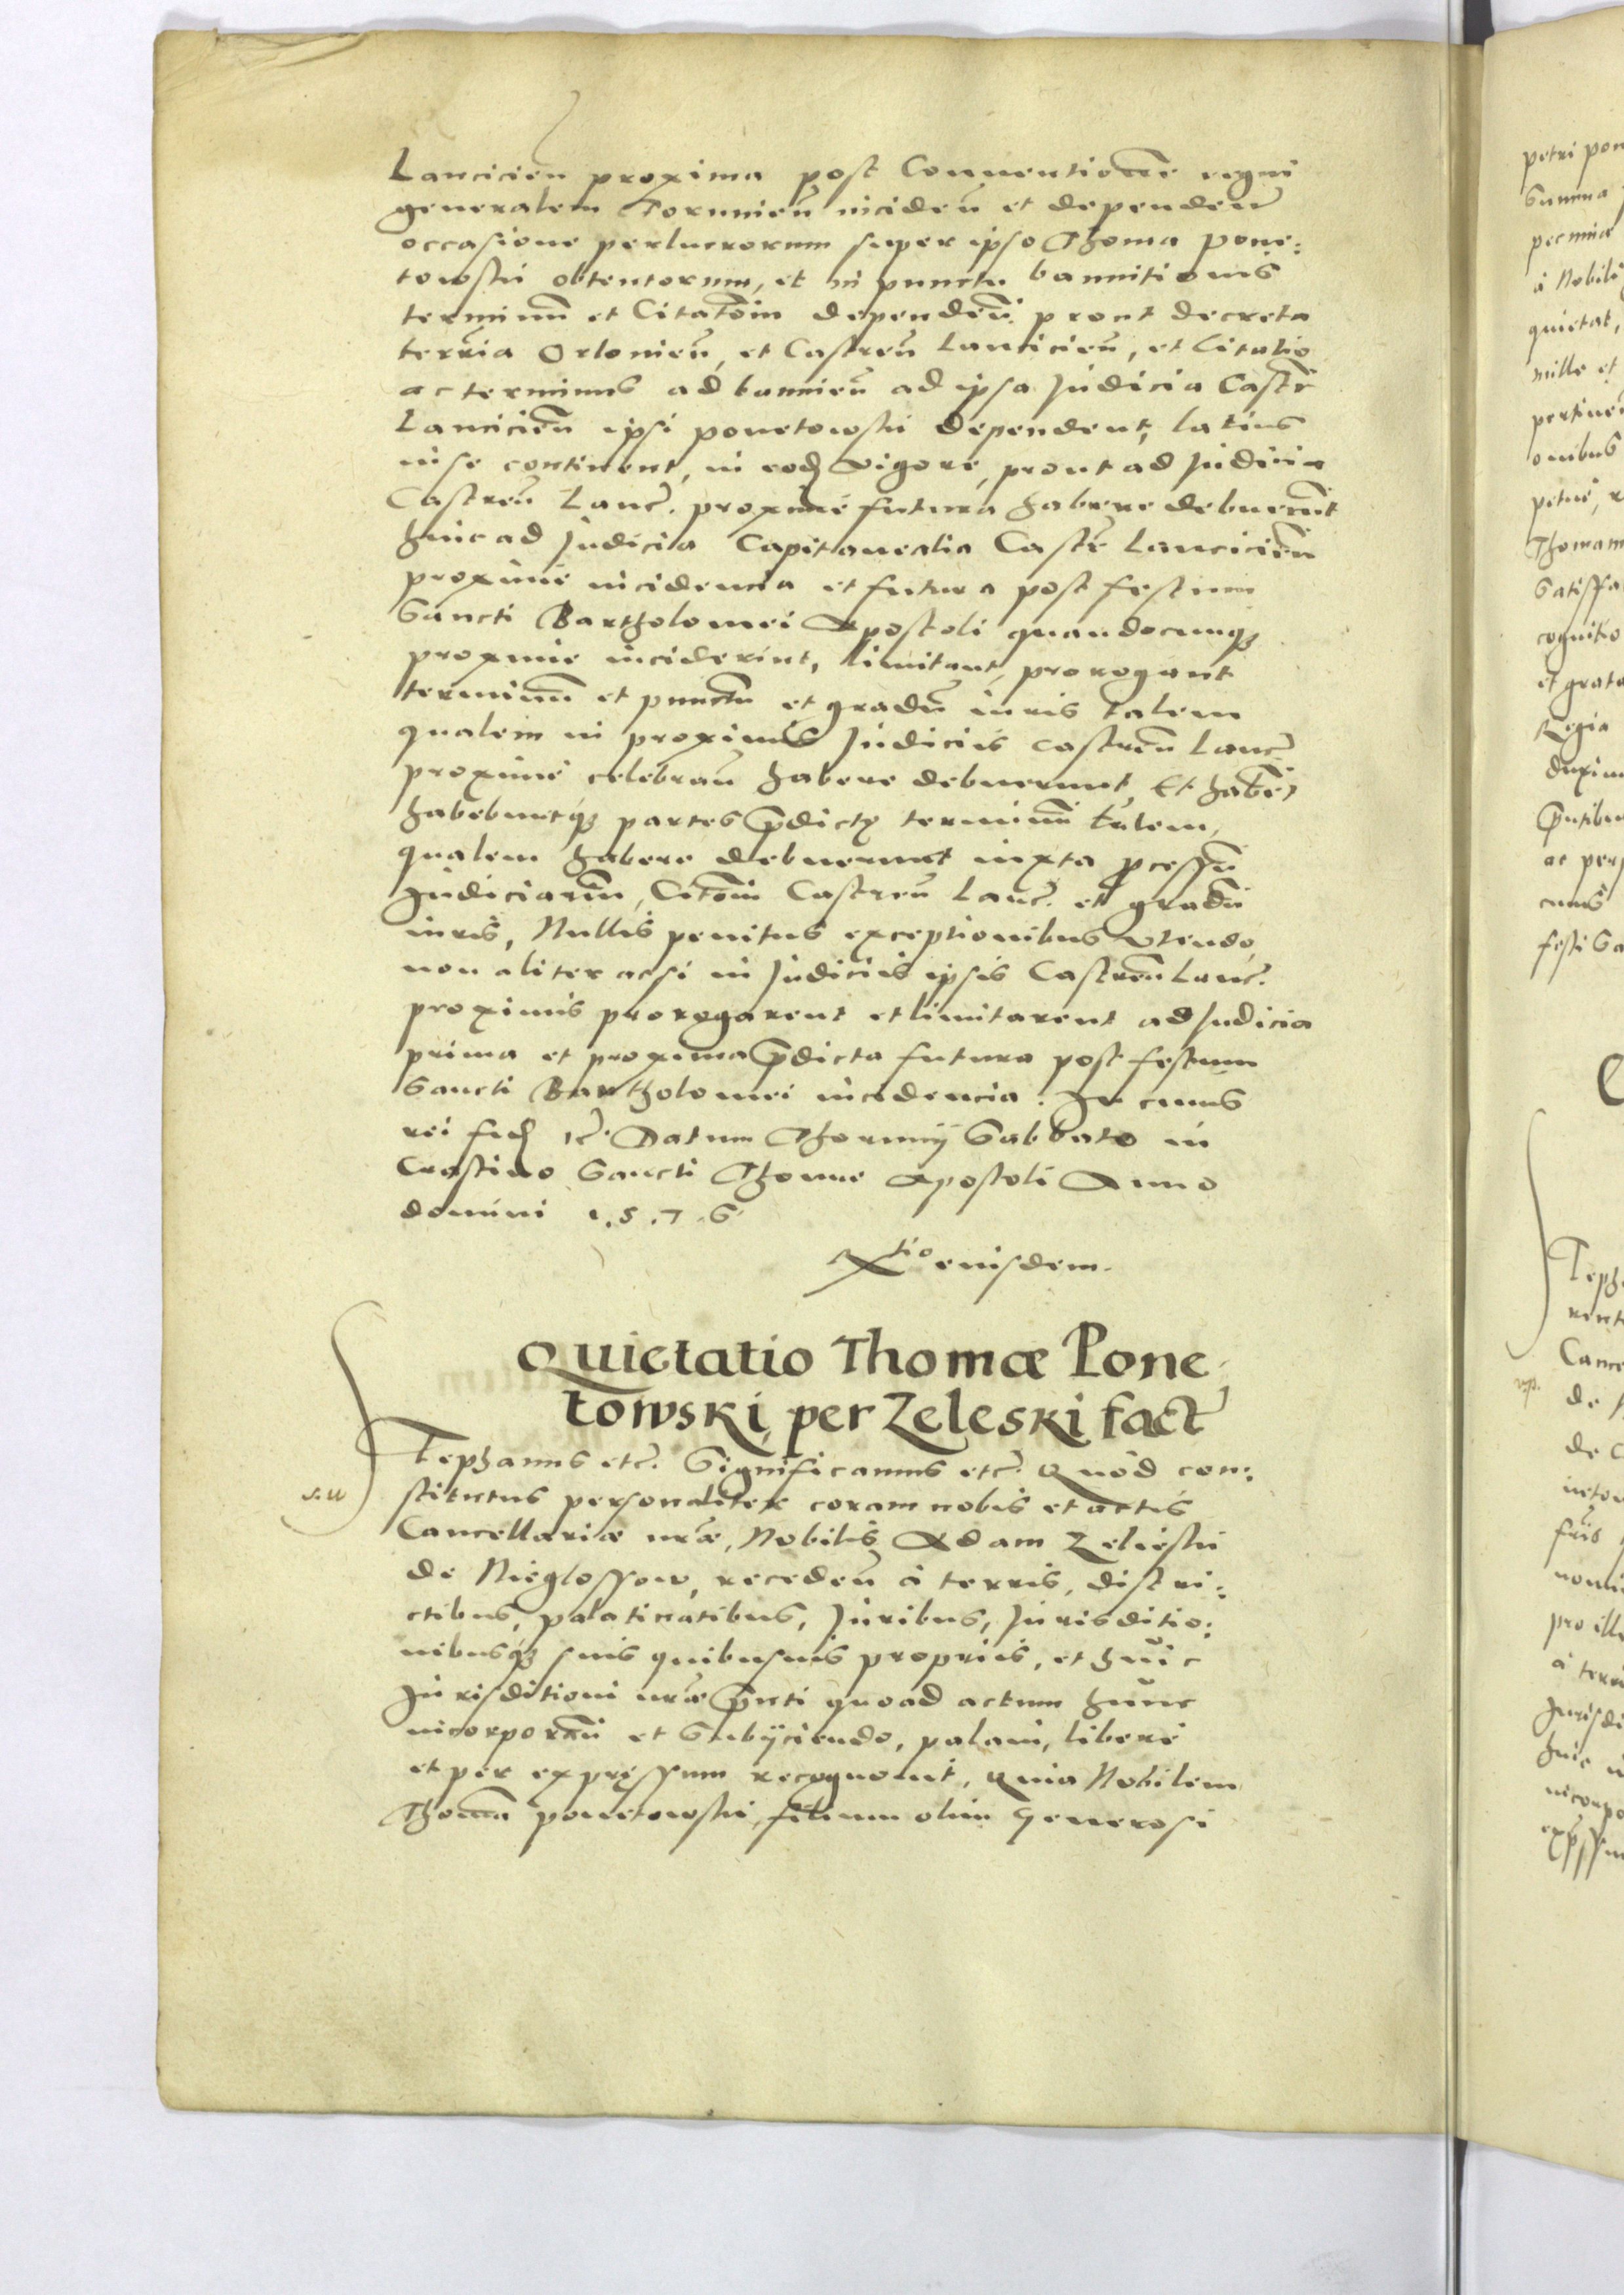 Lancicien̄ proxima post Conuentionē regni
generalem Torunien̄ inciden̄ et dependen̄
occasione perlucrorum super ipso Thoma Pone:
towski obtentorum, et in punctu bannitionis
terminū et Citatōm dependen̄. prout decreta
terrīa Orlouien̄, et Castren̄ Lancicien̄, et Citatio
ac terminus ad bannien̄ ad ipsa Judicia Castrī
Lancicien̄ ipsi Ponetowski dependent, latius
in se continent, in eod vigore, prout ad Judicia
Castren̄ Lanc̄. proximè futura habere debuerūt
huic ad Judicia Capitanealia Castrē Lancicien̄
proximè incidencia et futura post festum
Sancti Bartholomei Apostoli quandocunq3
proximè inciderint, limitant, prorogant
terminū et punctū et gradū iuris talem
qualem in proximis Judiciis castren̄ Lanc̄
proximè celebran̄ habere debuerunt, Et habēt
habebuntq3 partes p̄dictę terminū talem,
qualem habere debuerunt iuxta p̄cessū
Judiciariū, Citōm Castren̄ Lanc̄. et gradū
iuris, Nullis penitus exceptionibus vtendo,
non aliter acsi in Judiciis ipsis Castren̄ Lanc̄.
proximis prorogarent et limitarent ad Judicia
prima et proxima p̄dicta futura post festum
Sancti Bartholomei incidencia. In cuius
rei fid etc̄. Datum Thorunij Sabbato in
Crastino Sancti Thomae Apostoli Anno
domini 1.5.7.6
Rtio eiusdem.
Quietatio Thomæ Pone
towski, per Zeleski fact̄
Stephanus etc̄. Significamus etc̄. Quòd con:
stitutus personaliter coram nobis et actis
Cancellariæ nr̄æ, Nobilis Adam Zelieski
de Nieglossow, receden̄ à terris, distri:
ctibus, palatinatibus, Juribus, Jurisditio:
nibusq3 suis quibusuis propriis, et huic
Jurisditioni nr̄æ p̄nti quoad actum hunc
incorporan̄ et Subijciendo, palam, liberè
et per expressum recognouit, Quia Nobilem
Thomā Ponetowski, filium olim Generosi
petri pon
Summa
pecuniæ
à Nobili
quietat,
mille et
onibus
Thomam
Satisfa
cognitio
et grata
Regia
ac per
cuius
festi Sa
Cance
de
pro ille
à terri
Jurisdi
huic